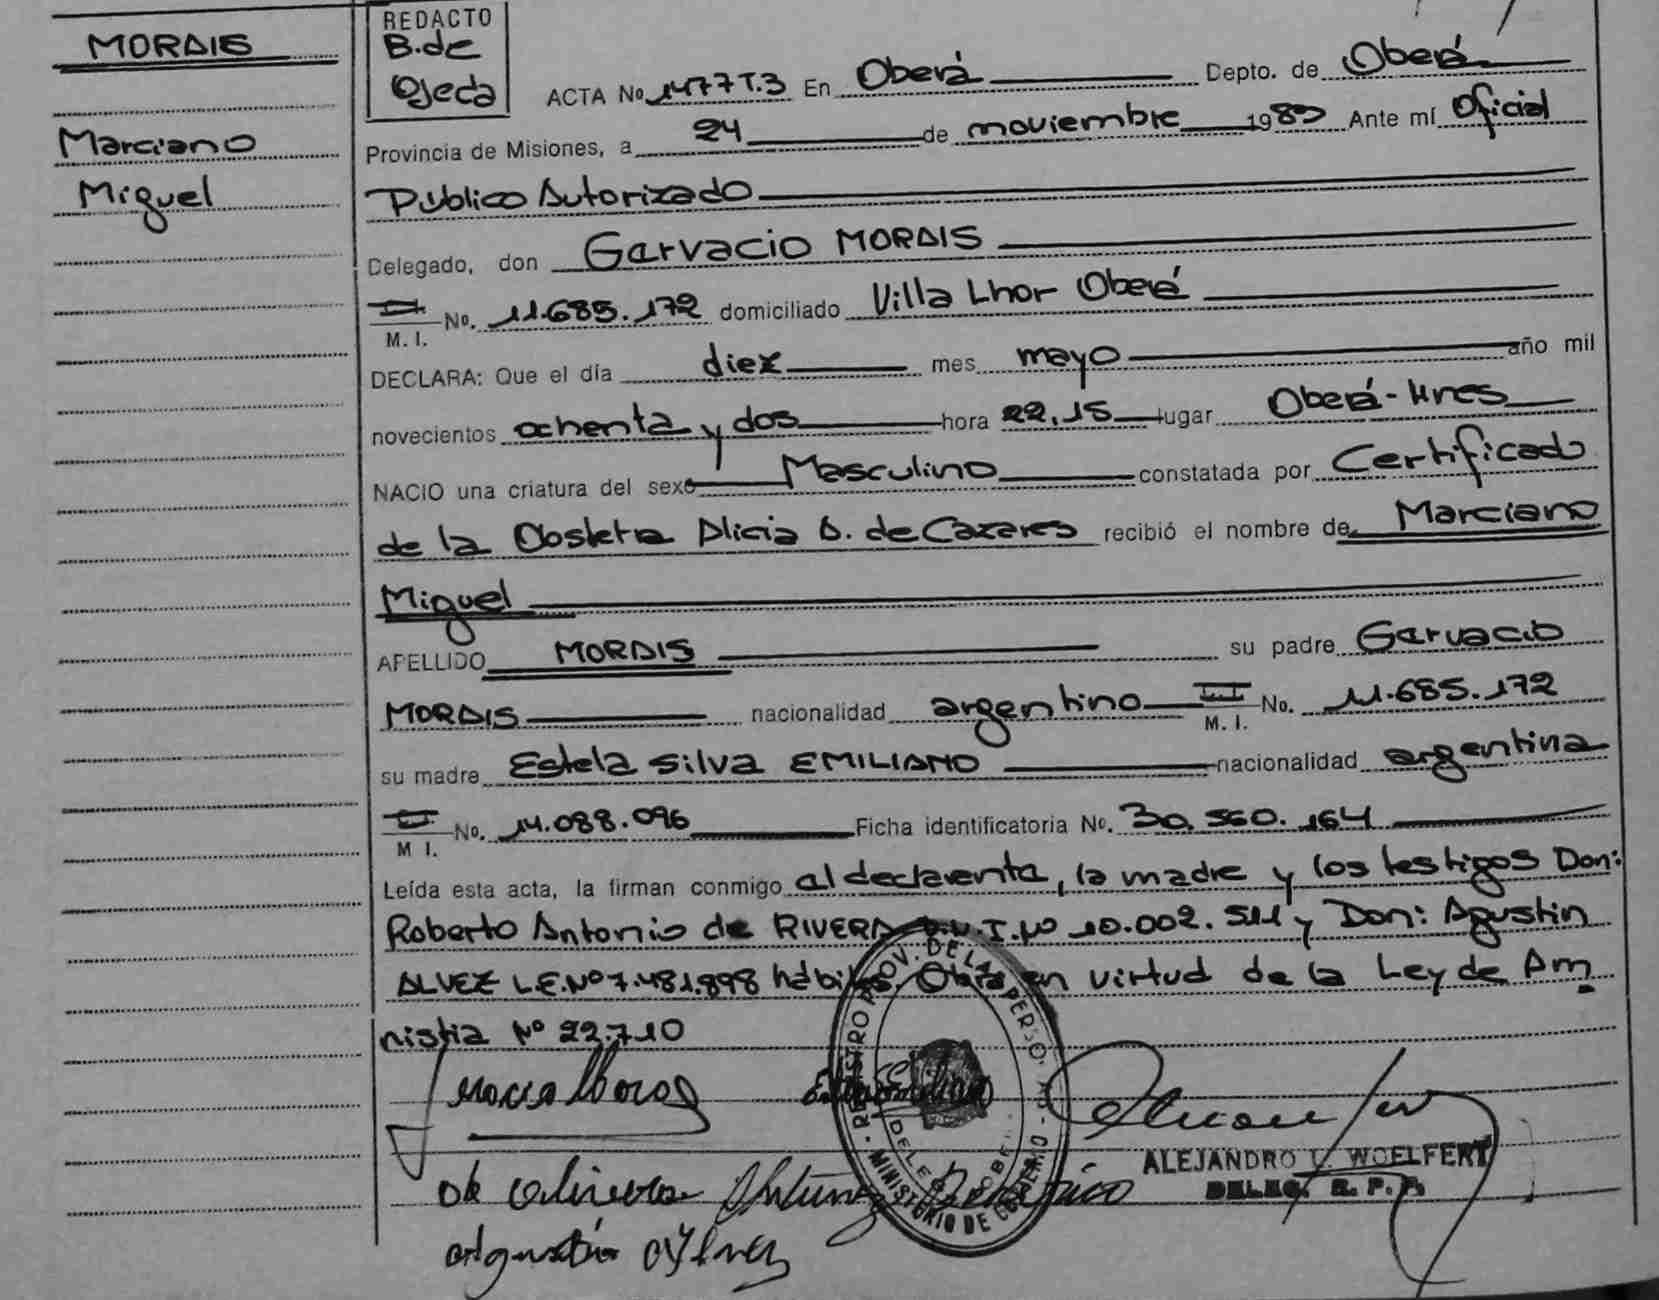 MORAIS
Marciano
Miguel
REDACTO
B. de
Ojeda
ACTA No 1477 T.3 En Oberá Depto. de Oberá
Provincia de Misiones, a 24 de noviembre 1983 Ante mí Oficial
Público Autorizado
Delegado, don Garvacio MORAIS
M. I. No. 11.685.172 domiciliado Villa Lhor Oberá
DECLARA: Que el día diez mes mayo año mil
novecientos ochenta y dos hora 22,15 lugar Oberá-Mnes
NACIO una criatura del sexo Masculino constatada por Certificado
de la Obstetra Alicia B. de Cazeres recibió el nombre de Marciano
Miguel
APELLIDO MORAIS su padre Garvacio
MORAIS nacionalidad argentino M. I. No. 11.685.172
su madre Estela Silva EMILIANO nacionalidad argentina
M I. No. 14.088.096 Ficha identificatoria No. 30.560.164
Leída esta acta, la firman conmigo al declarente, la madre y los testigos Don:
Roberto Antonio de RIVERA D.N.I.Nº 10.002.511 y Don: Agustin
ALVEZ L.E.Nº 7.481.898 hábiles. Obra en virtud de la Ley de Am
nistia Nº 22.710
REGISTRO PROV. DE LAS PERSO
MINISTERIO DE GOBIERNO
ALEJANDRO WOELFERT
DELEG. R. P. P.